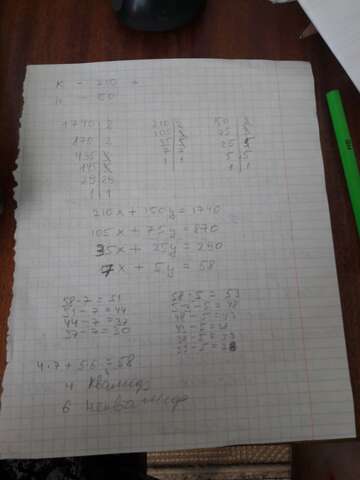 к - 210 т
н - 50
1740 2
870 2
435 3
145 5
29 29
1 1
210 2
105 3
35 5
7 7
1 1
50 2
75 3
25 5
5 5
1 1
210x + 150y = 1740
105x + 75y = 870
35x + 25y = 290
7x + 5y = 58
58 - 7 = 51
51 - 7 = 44
44 - 7 = 37
37 - 7 = 30
58 - 5 = 53
53 - 5 = 48
48 - 5 = 43
43 - 5 = 38
38 - 5 = 33
33 - 5 = 28
4·7 + 5·6 = 58
4
6